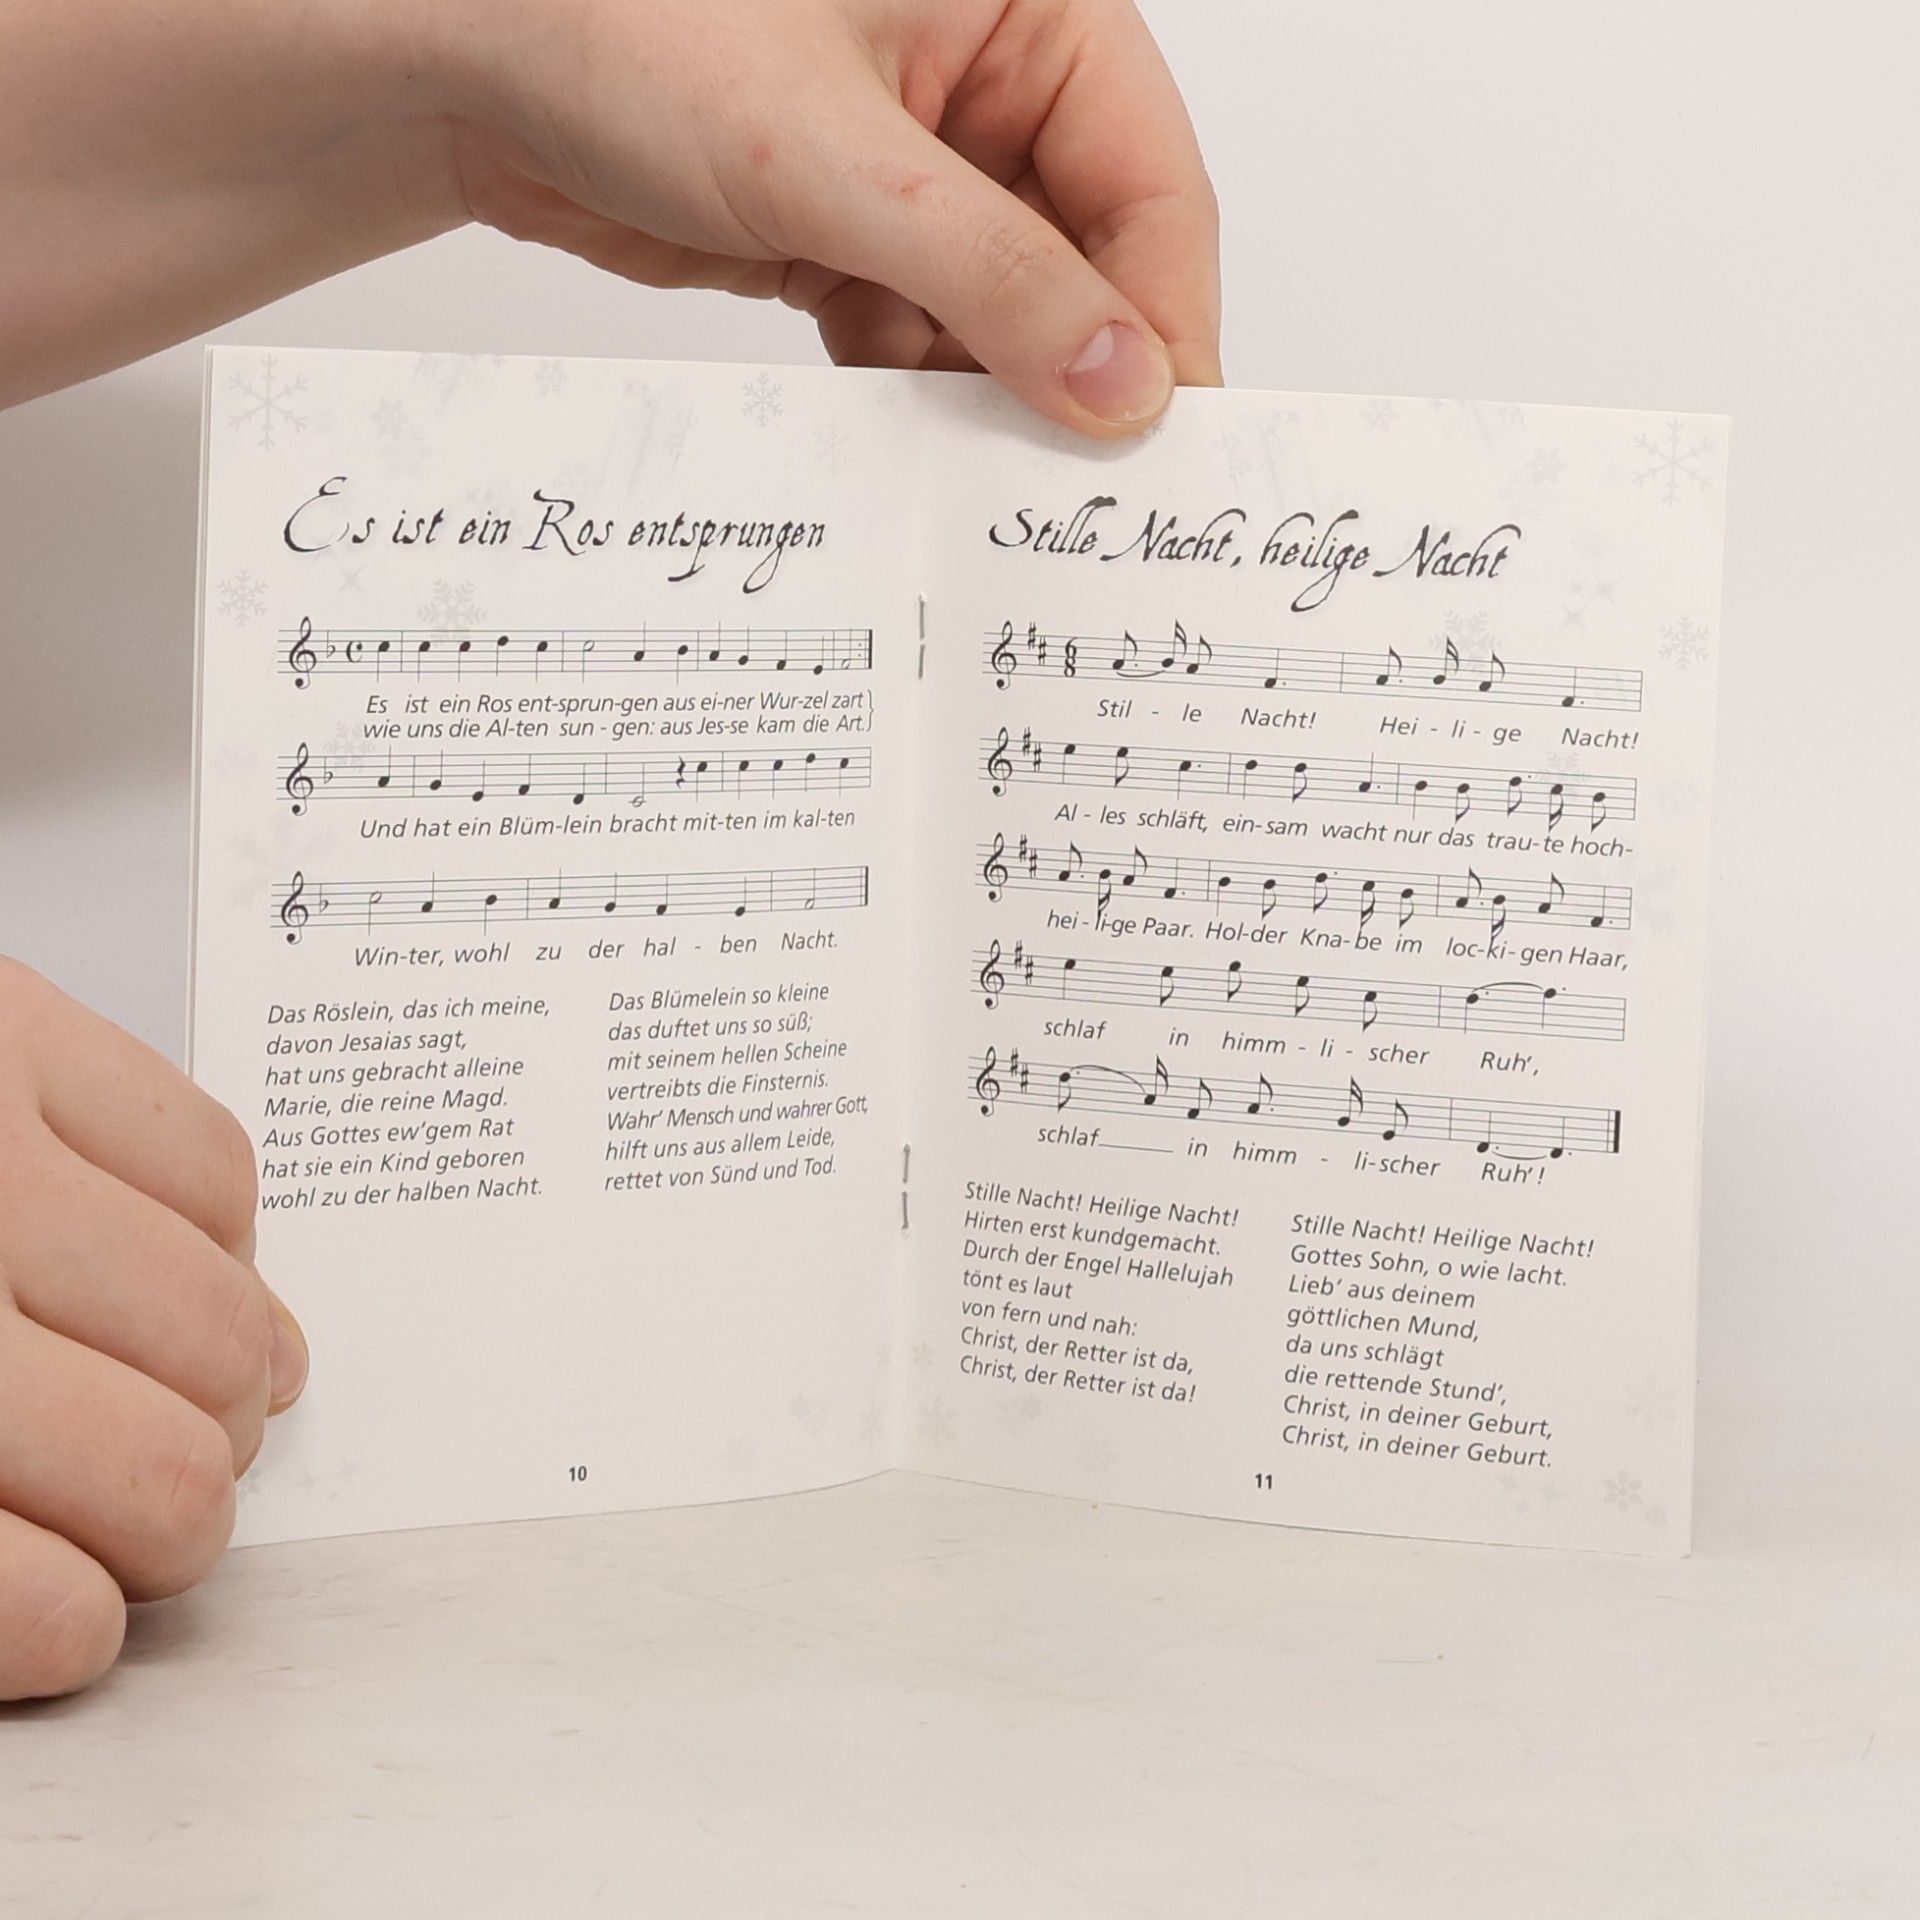 Es ist ein Ros entsprungen
Es ist ein Ros ent-sprun-gen aus ei-ner Wur-zel zart
wie uns die Al-ten sun - gen: aus Jes-se kam die Art.
Und hat ein Blüm-lein bracht mit-ten im kal-ten
Win-ter, wohl zu der hal - ben Nacht.
Das Röslein, das ich meine,
davon Jesaias sagt,
hat uns gebracht alleine
Marie, die reine Magd.
Aus Gottes ew'gem Rat
hat sie ein Kind geboren
wohl zu der halben Nacht.
Das Blümelein so kleine
das duftet uns so süß;
mit seinem hellen Scheine
vertreibts die Finsternis.
Wahr' Mensch und wahrer Gott,
hilft uns aus allem Leide,
rettet von Sünd und Tod.
10
Stille Nacht, heilige Nacht
6
8
Stil - le Nacht! Hei - li - ge Nacht!
Al - les schläft, ein-sam wacht nur das trau-te hoch-
hei - li-ge Paar. Hol-der Kna-be im loc-ki-gen Haar,
schlaf in himm - li - scher Ruh',
schlaf in himm - li-scher Ruh'!
Stille Nacht! Heilige Nacht!
Hirten erst kundgemacht.
Durch der Engel Hallelujah
tönt es laut
von fern und nah:
Christ, der Retter ist da,
Christ, der Retter ist da!
Stille Nacht! Heilige Nacht!
Gottes Sohn, o wie lacht.
Lieb' aus deinem
göttlichen Mund,
da uns schlägt
die rettende Stund',
Christ, in deiner Geburt,
Christ, in deiner Geburt.
11